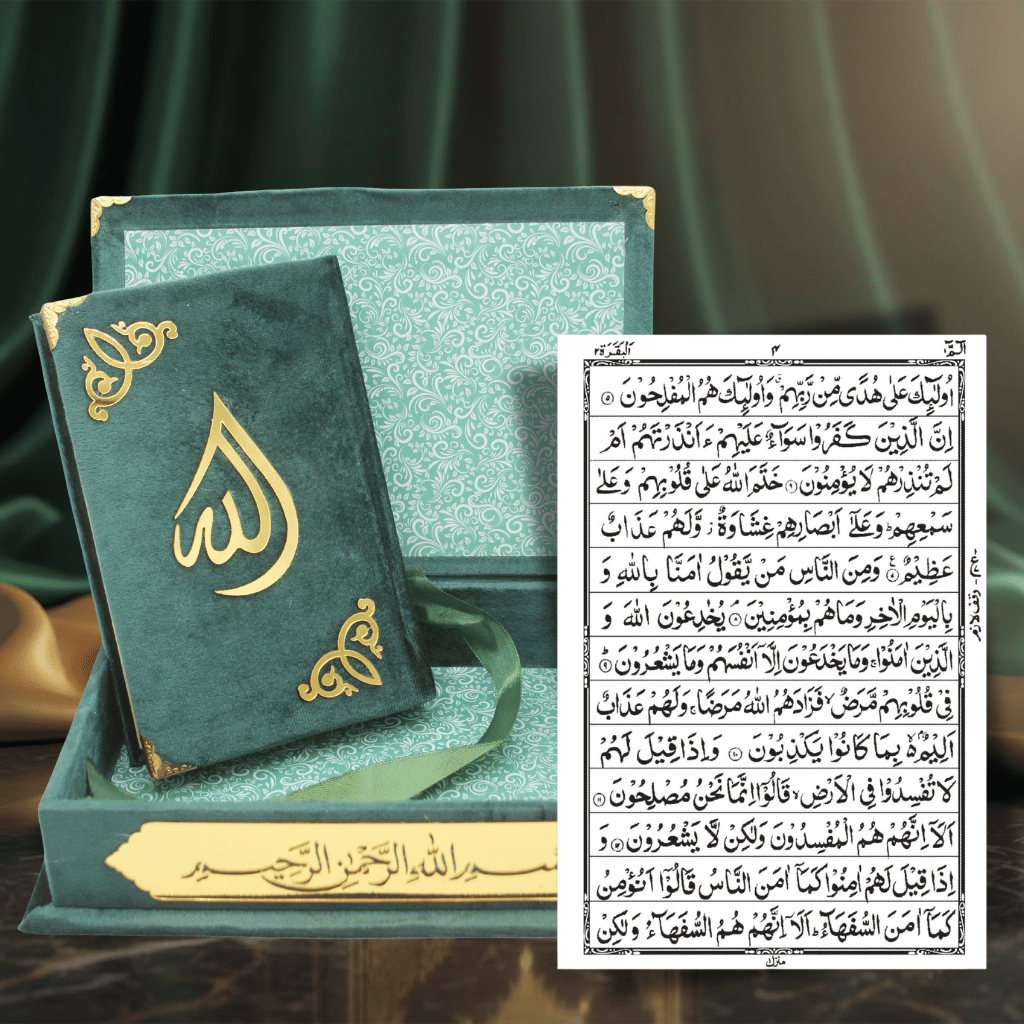 الله
بسم الله الرحمن الرحيم
الٓمّٓ ۱
۴
اَلْبَقَرَة ۲
اُولٰٓئِكَ عَلٰى هُدًى مِّنْ رَّبِّهِمْ ۙ وَاُولٰٓئِكَ هُمُ الْمُفْلِحُوْنَ ۵
اِنَّ الَّذِيْنَ كَفَرُوْا سَوَآءٌ عَلَيْهِمْ ءَاَنْذَرْتَهُمْ اَمْ
لَمْ تُنْذِرْهُمْ لَا يُؤْمِنُوْنَ ۶ خَتَمَ اللّٰهُ عَلٰى قُلُوْبِهِمْ وَعَلٰى
سَمْعِهِمْ ؕ وَعَلٰٓى اَبْصَارِهِمْ غِشَاوَةٌ ز وَّلَهُمْ عَذَابٌ
عَظِيْمٌ ۷ ع وَمِنَ النَّاسِ مَنْ يَّقُوْلُ اٰمَنَّا بِاللّٰهِ وَ
بِالْيَوْمِ الْاٰخِرِ وَمَا هُمْ بِمُؤْمِنِيْنَ ۘ ۸ يُخٰدِعُوْنَ اللّٰهَ وَ
الَّذِيْنَ اٰمَنُوْا ۚ وَمَا يَخْدَعُوْنَ اِلَّآ اَنْفُسَهُمْ وَمَا يَشْعُرُوْنَ ؕ ۹
فِيْ قُلُوْبِهِمْ مَّرَضٌ ۙ فَزَادَهُمُ اللّٰهُ مَرَضًا ۚ وَلَهُمْ عَذَابٌ
اَلِيْمٌۢ ۙ بِمَا كَانُوْا يَكْذِبُوْنَ ۱۰ وَاِذَا قِيْلَ لَهُمْ
لَا تُفْسِدُوْا فِي الْاَرْضِ ۙ قَالُوْٓا اِنَّمَا نَحْنُ مُصْلِحُوْنَ ۱۱
اَلَآ اِنَّهُمْ هُمُ الْمُفْسِدُوْنَ وَلٰكِنْ لَّا يَشْعُرُوْنَ ۱۲ وَ
اِذَا قِيْلَ لَهُمْ اٰمِنُوْا كَمَآ اٰمَنَ النَّاسُ قَالُوْٓا اَنُؤْمِنُ
كَمَآ اٰمَنَ السُّفَهَآءُ ؕ اَلَآ اِنَّهُمْ هُمُ السُّفَهَآءُ وَلٰكِنْ
وقف لازم